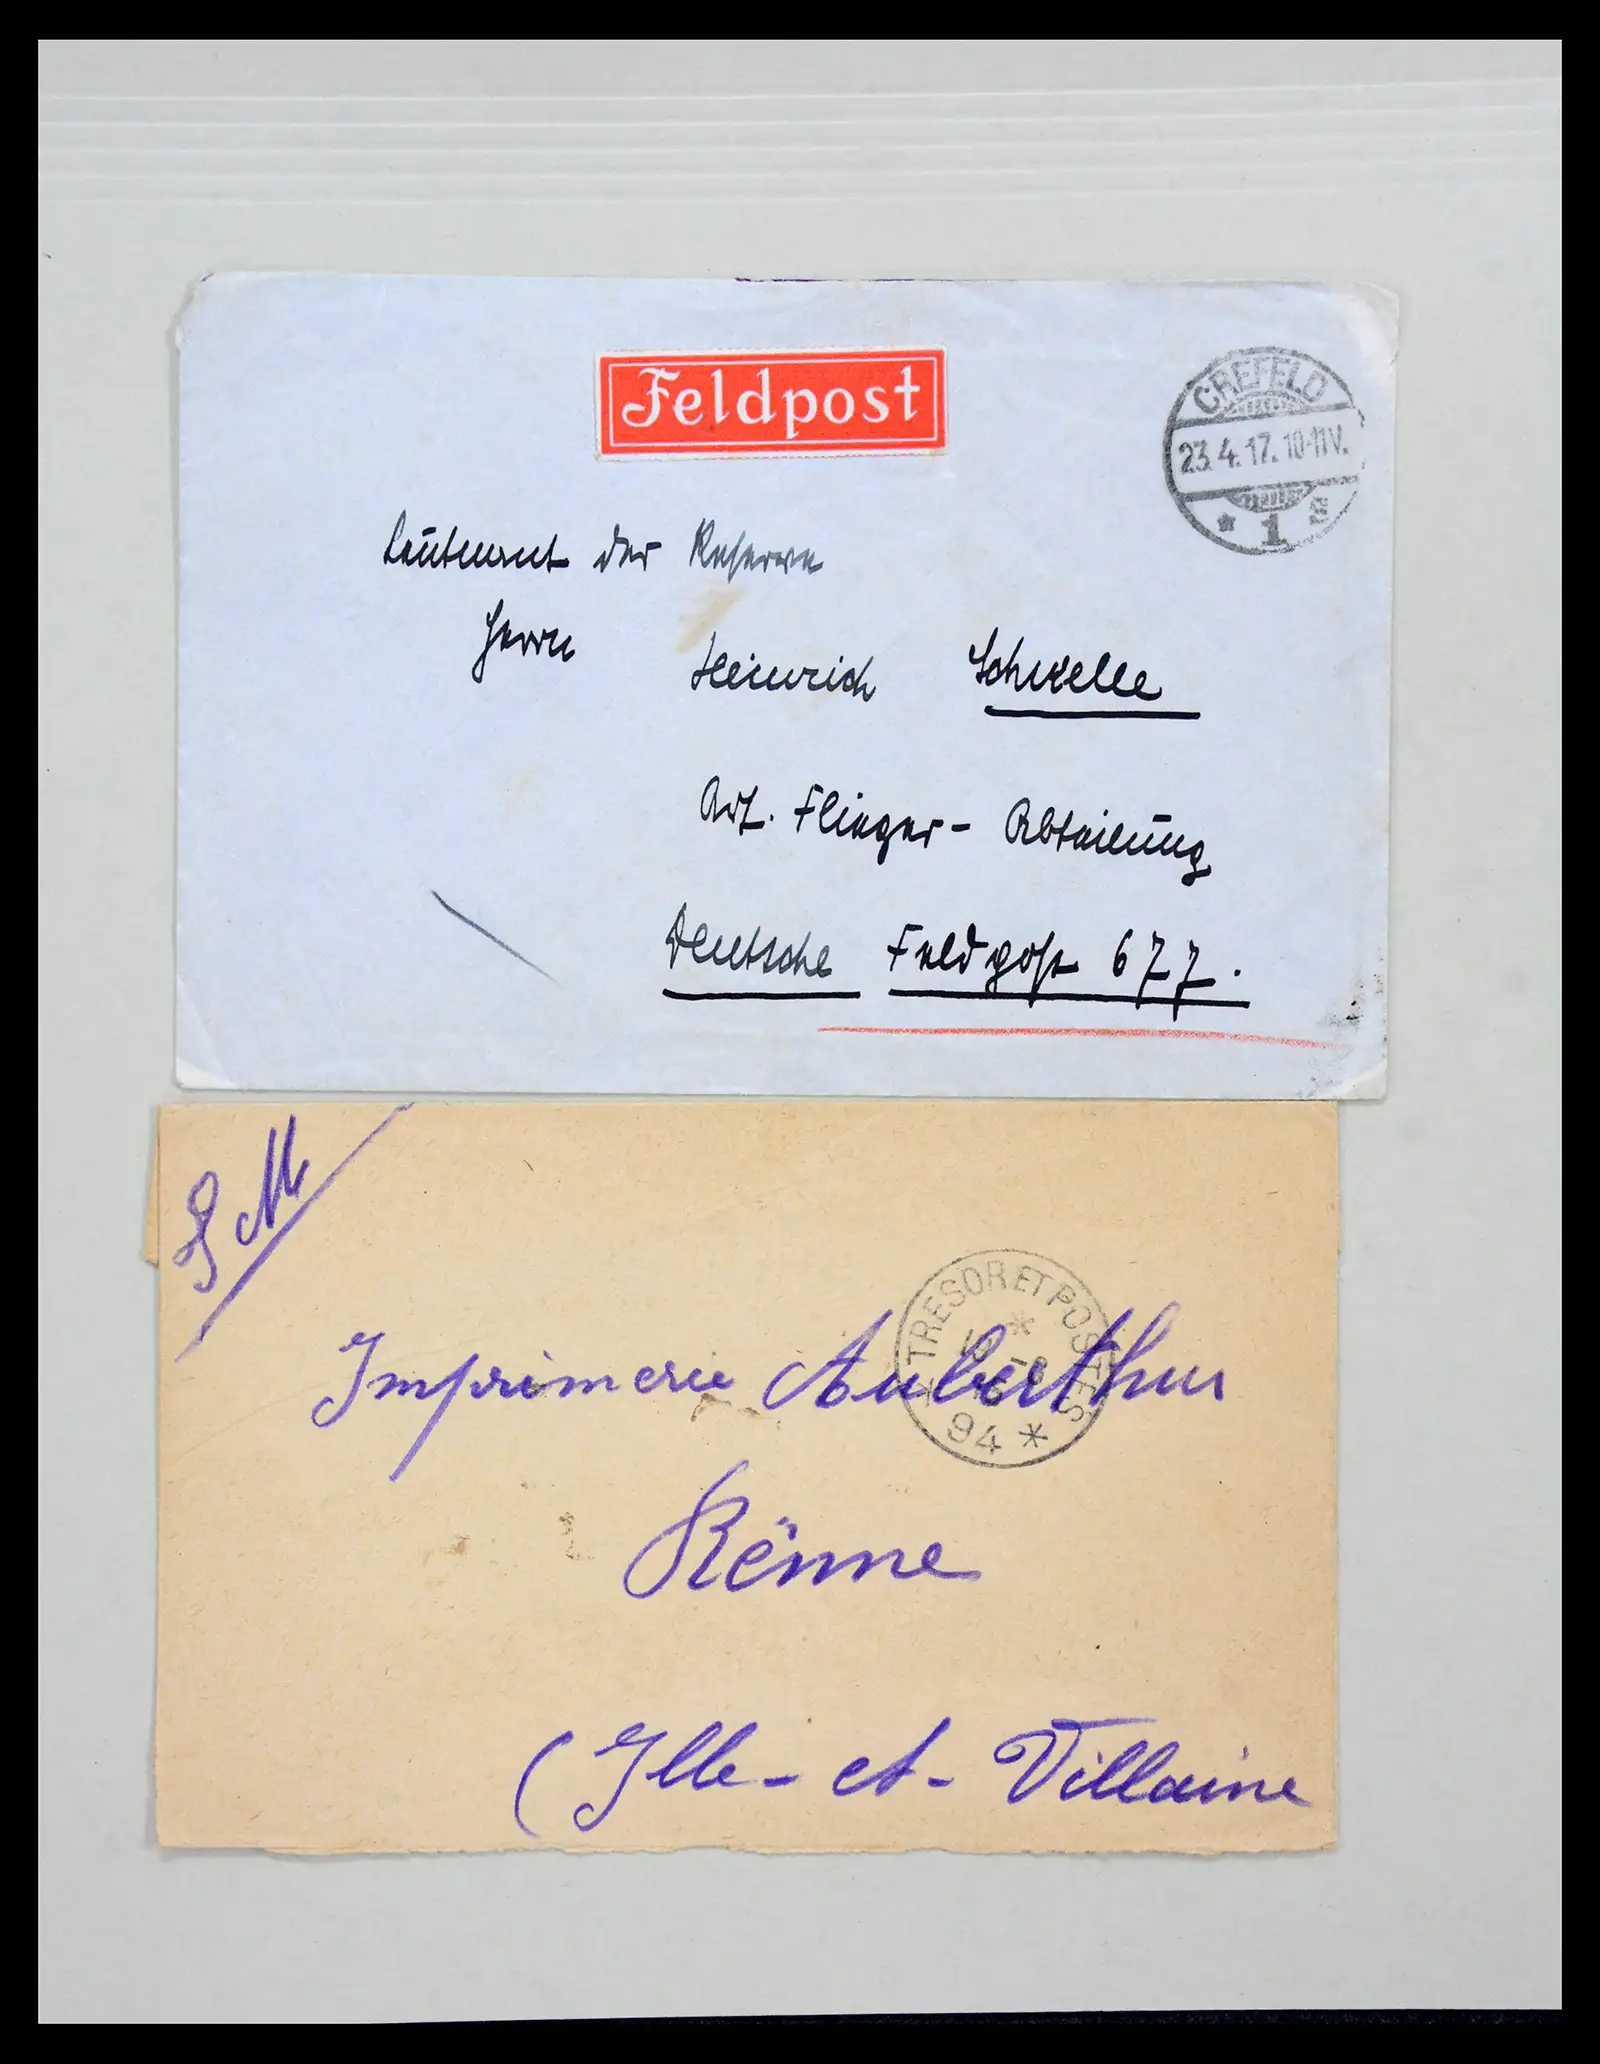 Feldpost
CREFELD
23.4.17.10-11V.
* 1
Leutnant der Reserve
Herrn Heinrich
Art. Flieger-Abteilung
Deutsche Feldpost 677.
S M
TRESOR ET POSTES
94 *
Imprimerie Auberthur
Rênne
(Ille-et-Villaine